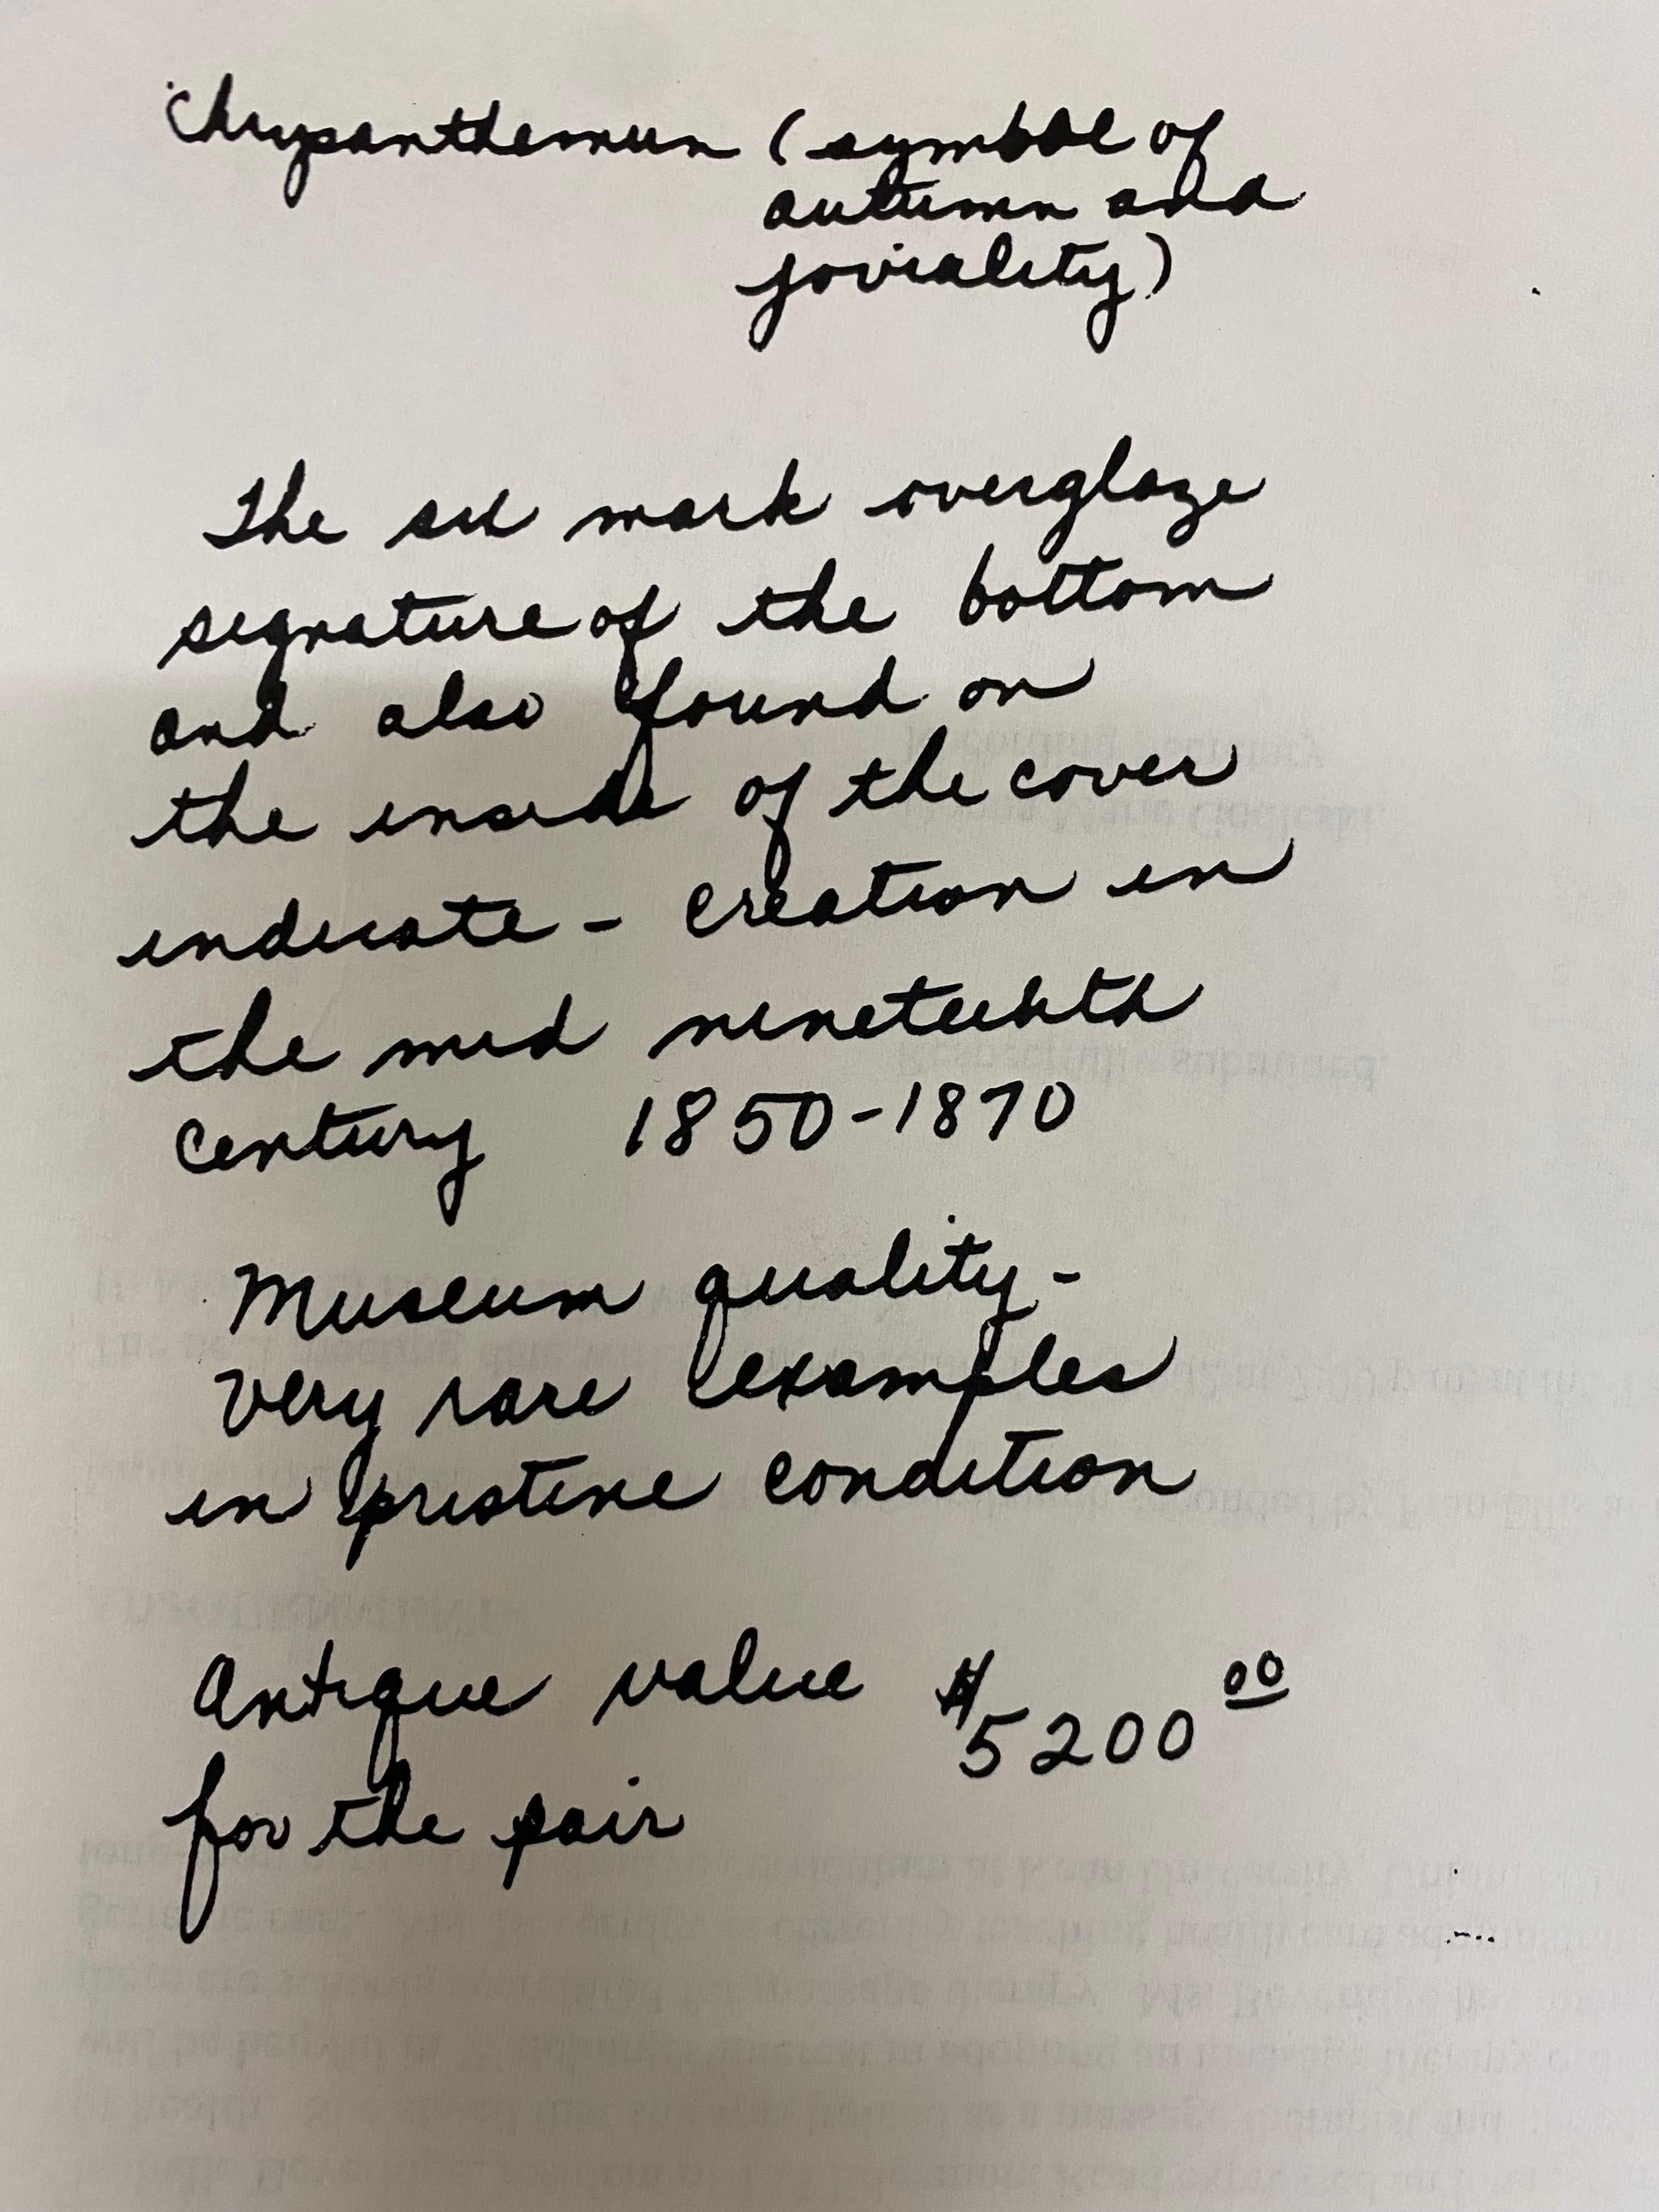 Chrysanthemum (symbol of
autumn and
joviality)
The mark overglaze
signature of the bottom
and also found on
the inside of the cover
indicate - creation in
the mid nineteenth
century 1850-1870
Museum quality -
very rare examples
in pristine condition
Antique value $5200 00
for the pair